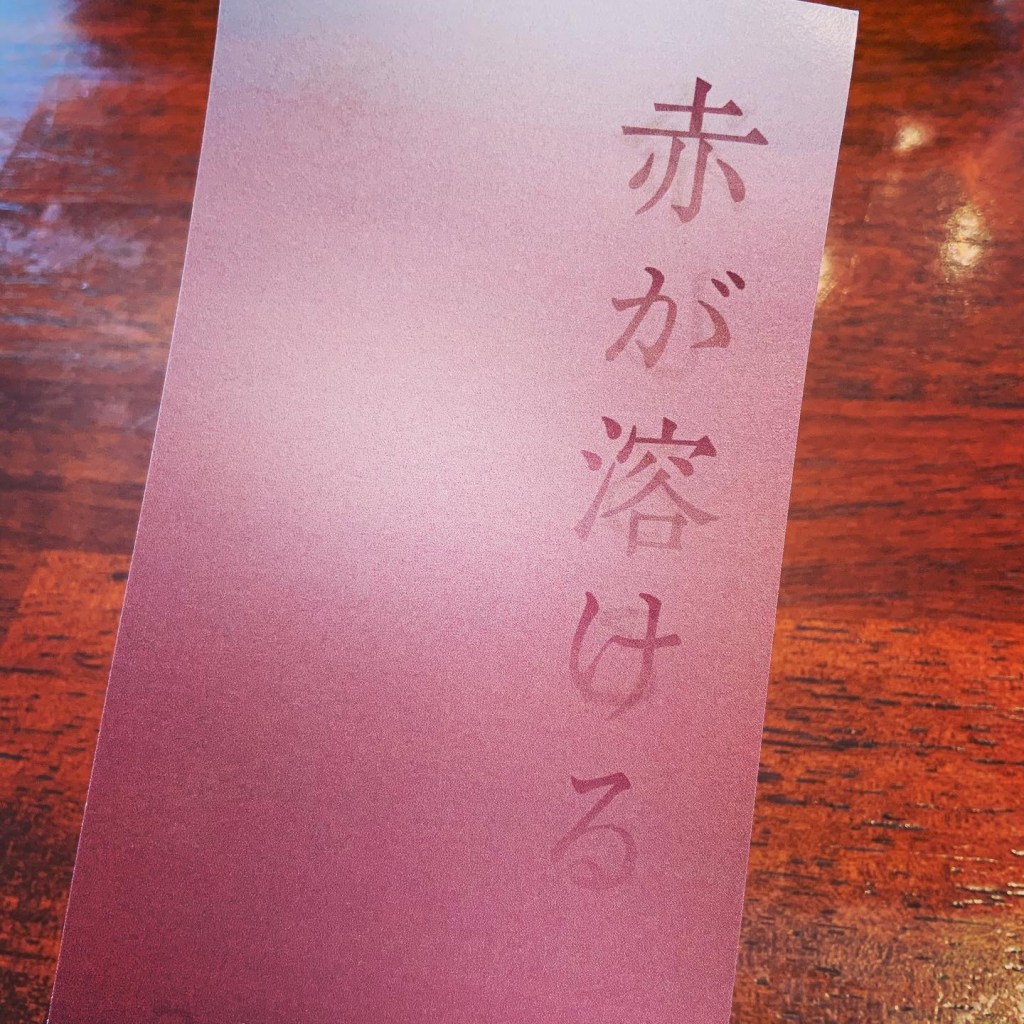 赤が溶ける